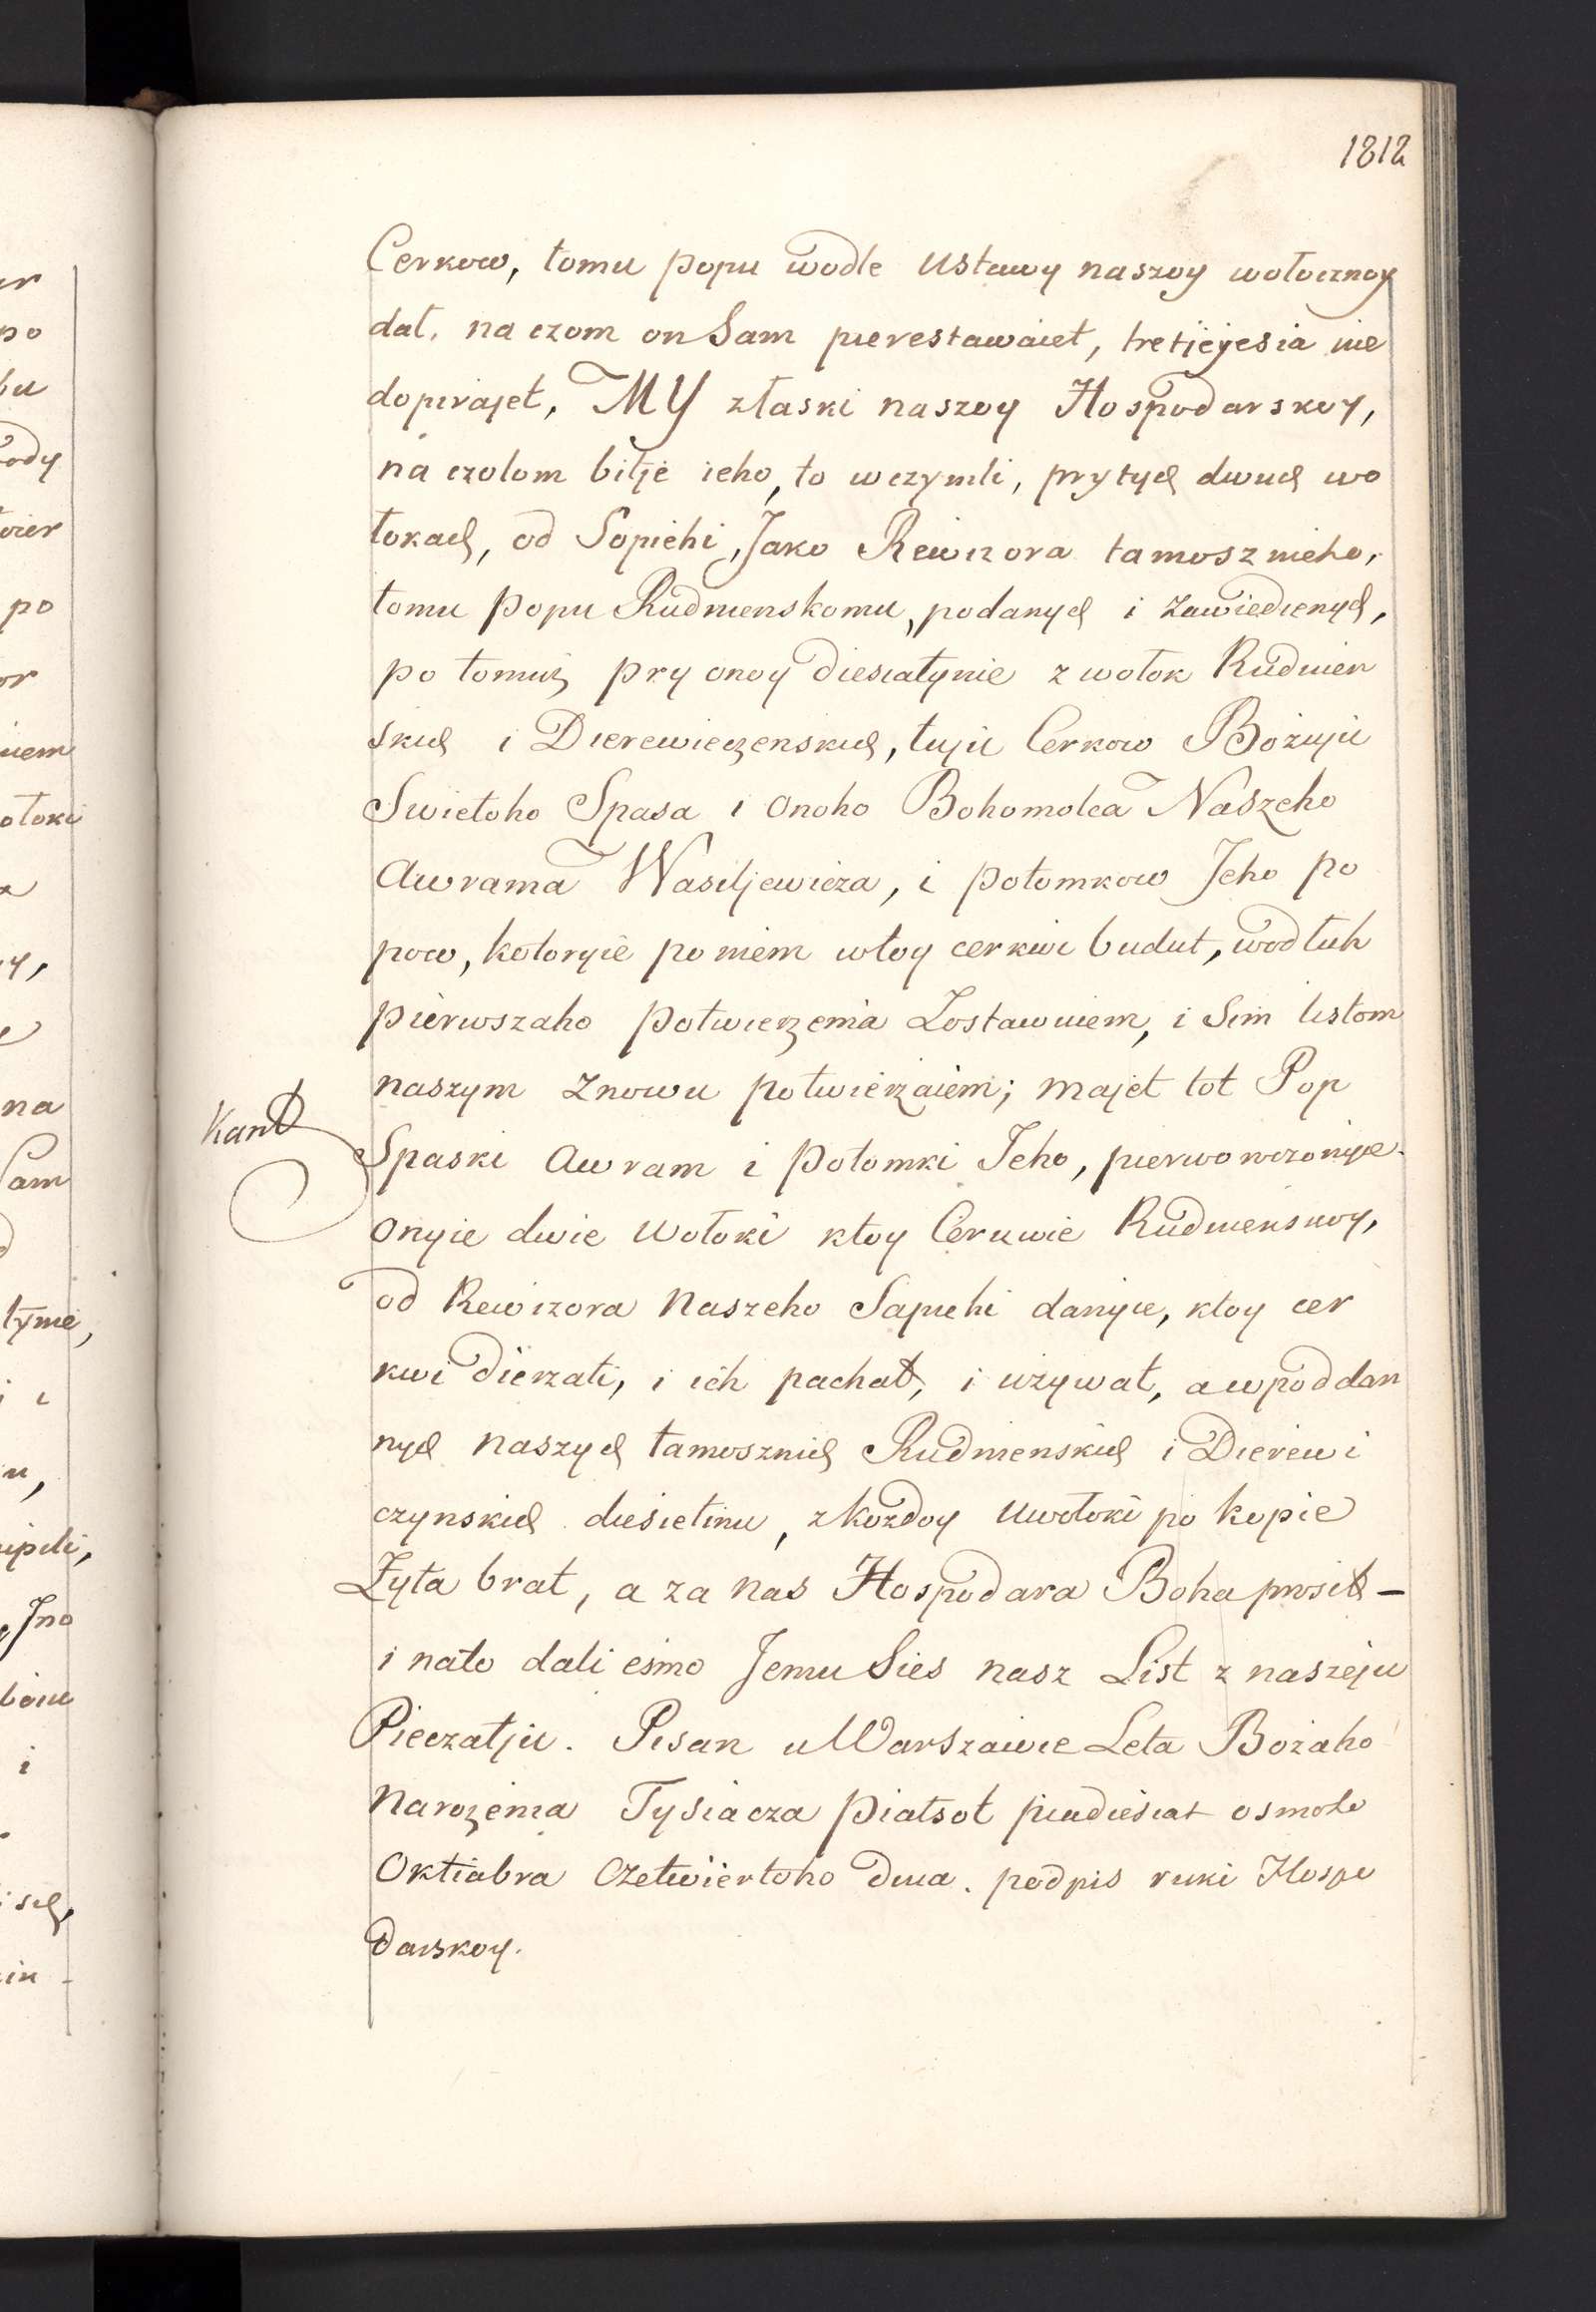 1812
Cerkow, tomu popu wodle ustawy naszoy wołocznoy
dał. na czom on Sam pierestawaiet, tretiejesia nie
dopirajet, MY złaski naszoy Hospodarskoy,
na czolom bitje ieho, to wczynili, prytych dwuch wo
łokach, od Sopiehi, Jako Rewizora tamosznieho,
tomu popu Rudnienskomu, podanych i zawiedienych,
po tomuż pry onoy diesiatynie z wołok Rudnien
skich i Dierewieczenskich, tuju Cerkow Bożuju
Swietoho Spasa i onoho Bohomolca Naszeho
Awrama Wasiljewicza, i potomkow Jeho po
pow, kotoryie po niem wtoy cerkwi budut, wodłuh
pierwszaho potwierżenia Zostawuiem, i Sim listom
naszym Znowu potwierżaiem; majet tot Pop
Kant
Spaski Awram i potomki Jeho, pierworeczonyie
onyie dwie wołoki ktoy Cerkwie Rudnienskoy,
od Rewizora Naszeho Sapiehi danyie, ktoy cer
kwi dierzati, i ich pachat, i używat, a w poddan
nych naszych tamosznich Rudnienskich i Dierewi
czynskich diesietinu, zkożdoy uwołoki po kopie
Żyta brat, a za nas Hospodara Boha prosit –
i nato dali esmo Jemu Sies nasz List z naszeju
Pieczatju. Pisan u Warszawie Leta Bożaho
Narożenia Tysiacza piatsot piadiesiat osmoho
Oktiabra Czetwiertoho dnia. podpis ruki Hospo
darskoy.